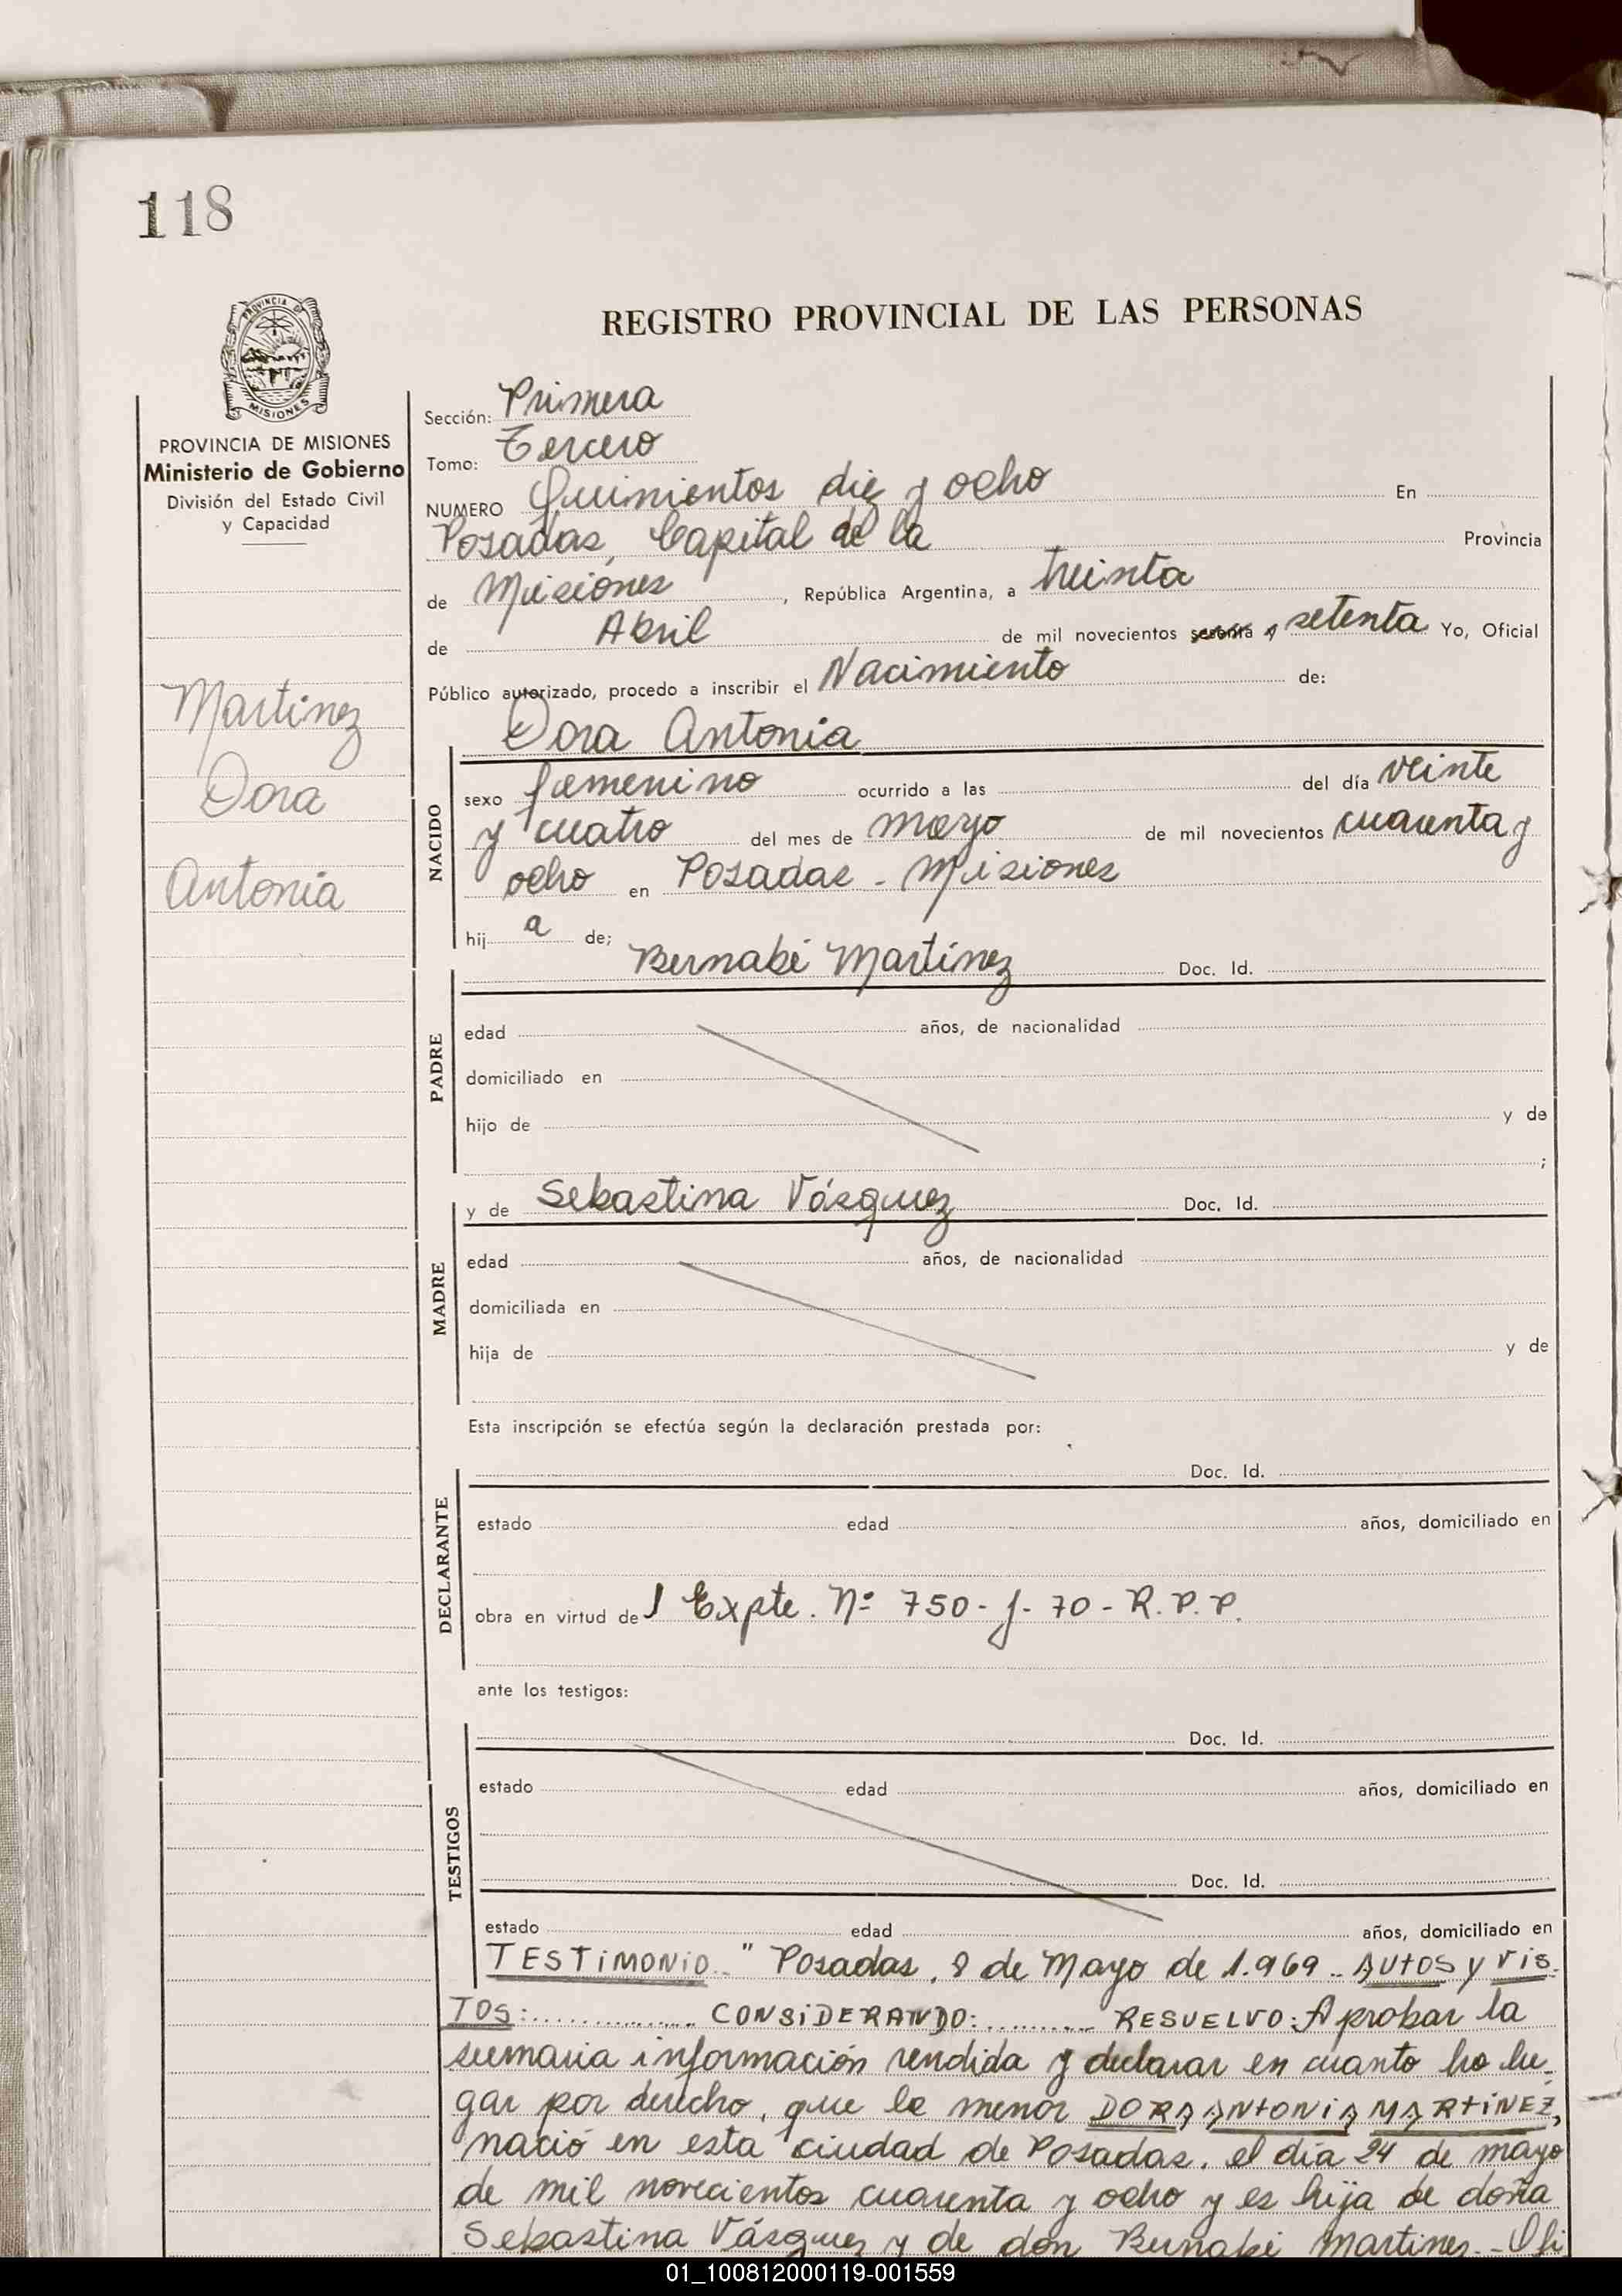 118
REGISTRO PROVINCIAL DE LAS PERSONAS
PROVINCIA DE
MISIONES
PROVINCIA DE MISIONES
Ministerio de Gobierno
División del Estado Civil
y Capacidad
Martinez
Dora
Antonia
Sección: Primera
Tomo: Tercero
NUMERO Quinientos diez y ocho En
Posadas, Capital de la Provincia
de Misiones, República Argentina, a treinta
de Abril de mil novecientos sesenta y setenta Yo, Oficial
Público autorizado, procedo a inscribir el Nacimiento de:
Dora Antonia
NACIDO
sexo femenino ocurrido a las del día veinte
y cuatro del mes de mayo de mil novecientos cuarenta y
ocho en Posadas - Misiones
hij a de;
Bernabé Martínez Doc. Id.
PADRE
edad años, de nacionalidad
domiciliado en
hijo de y de
;
y de Sebastina Vásquez Doc. Id.
MADRE
edad años, de nacionalidad
domiciliada en
hija de y de
Esta inscripción se efectúa según la declaración prestada por:
Doc. Id.
DECLARANTE
estado edad años, domiciliado en
obra en virtud de l Expte. Nº 750-J-70-R.P.P.
ante los testigos:
Doc. Id.
TESTIGOS
estado edad años, domiciliado en
Doc. Id.
estado edad años, domiciliado en
TESTIMONIO.. " Posadas, 8 de Mayo de 1.969.. AUTOS y VIS
TOS:.............. CONSIDERANDO:.......... RESUELVO: Aprobar la
sumaria información rendida y declarar en cuanto ha lu-
gar por derecho, que la menor DORA ANTONIA MARTINEZ,
nació en esta ciudad de Posadas, el día 24 de mayo
de mil novecientos cuarenta y ocho y es hija de doña
Sebastina Vásquez y de don Bernabé Martinez.- Ofi
01_100812000119-001559